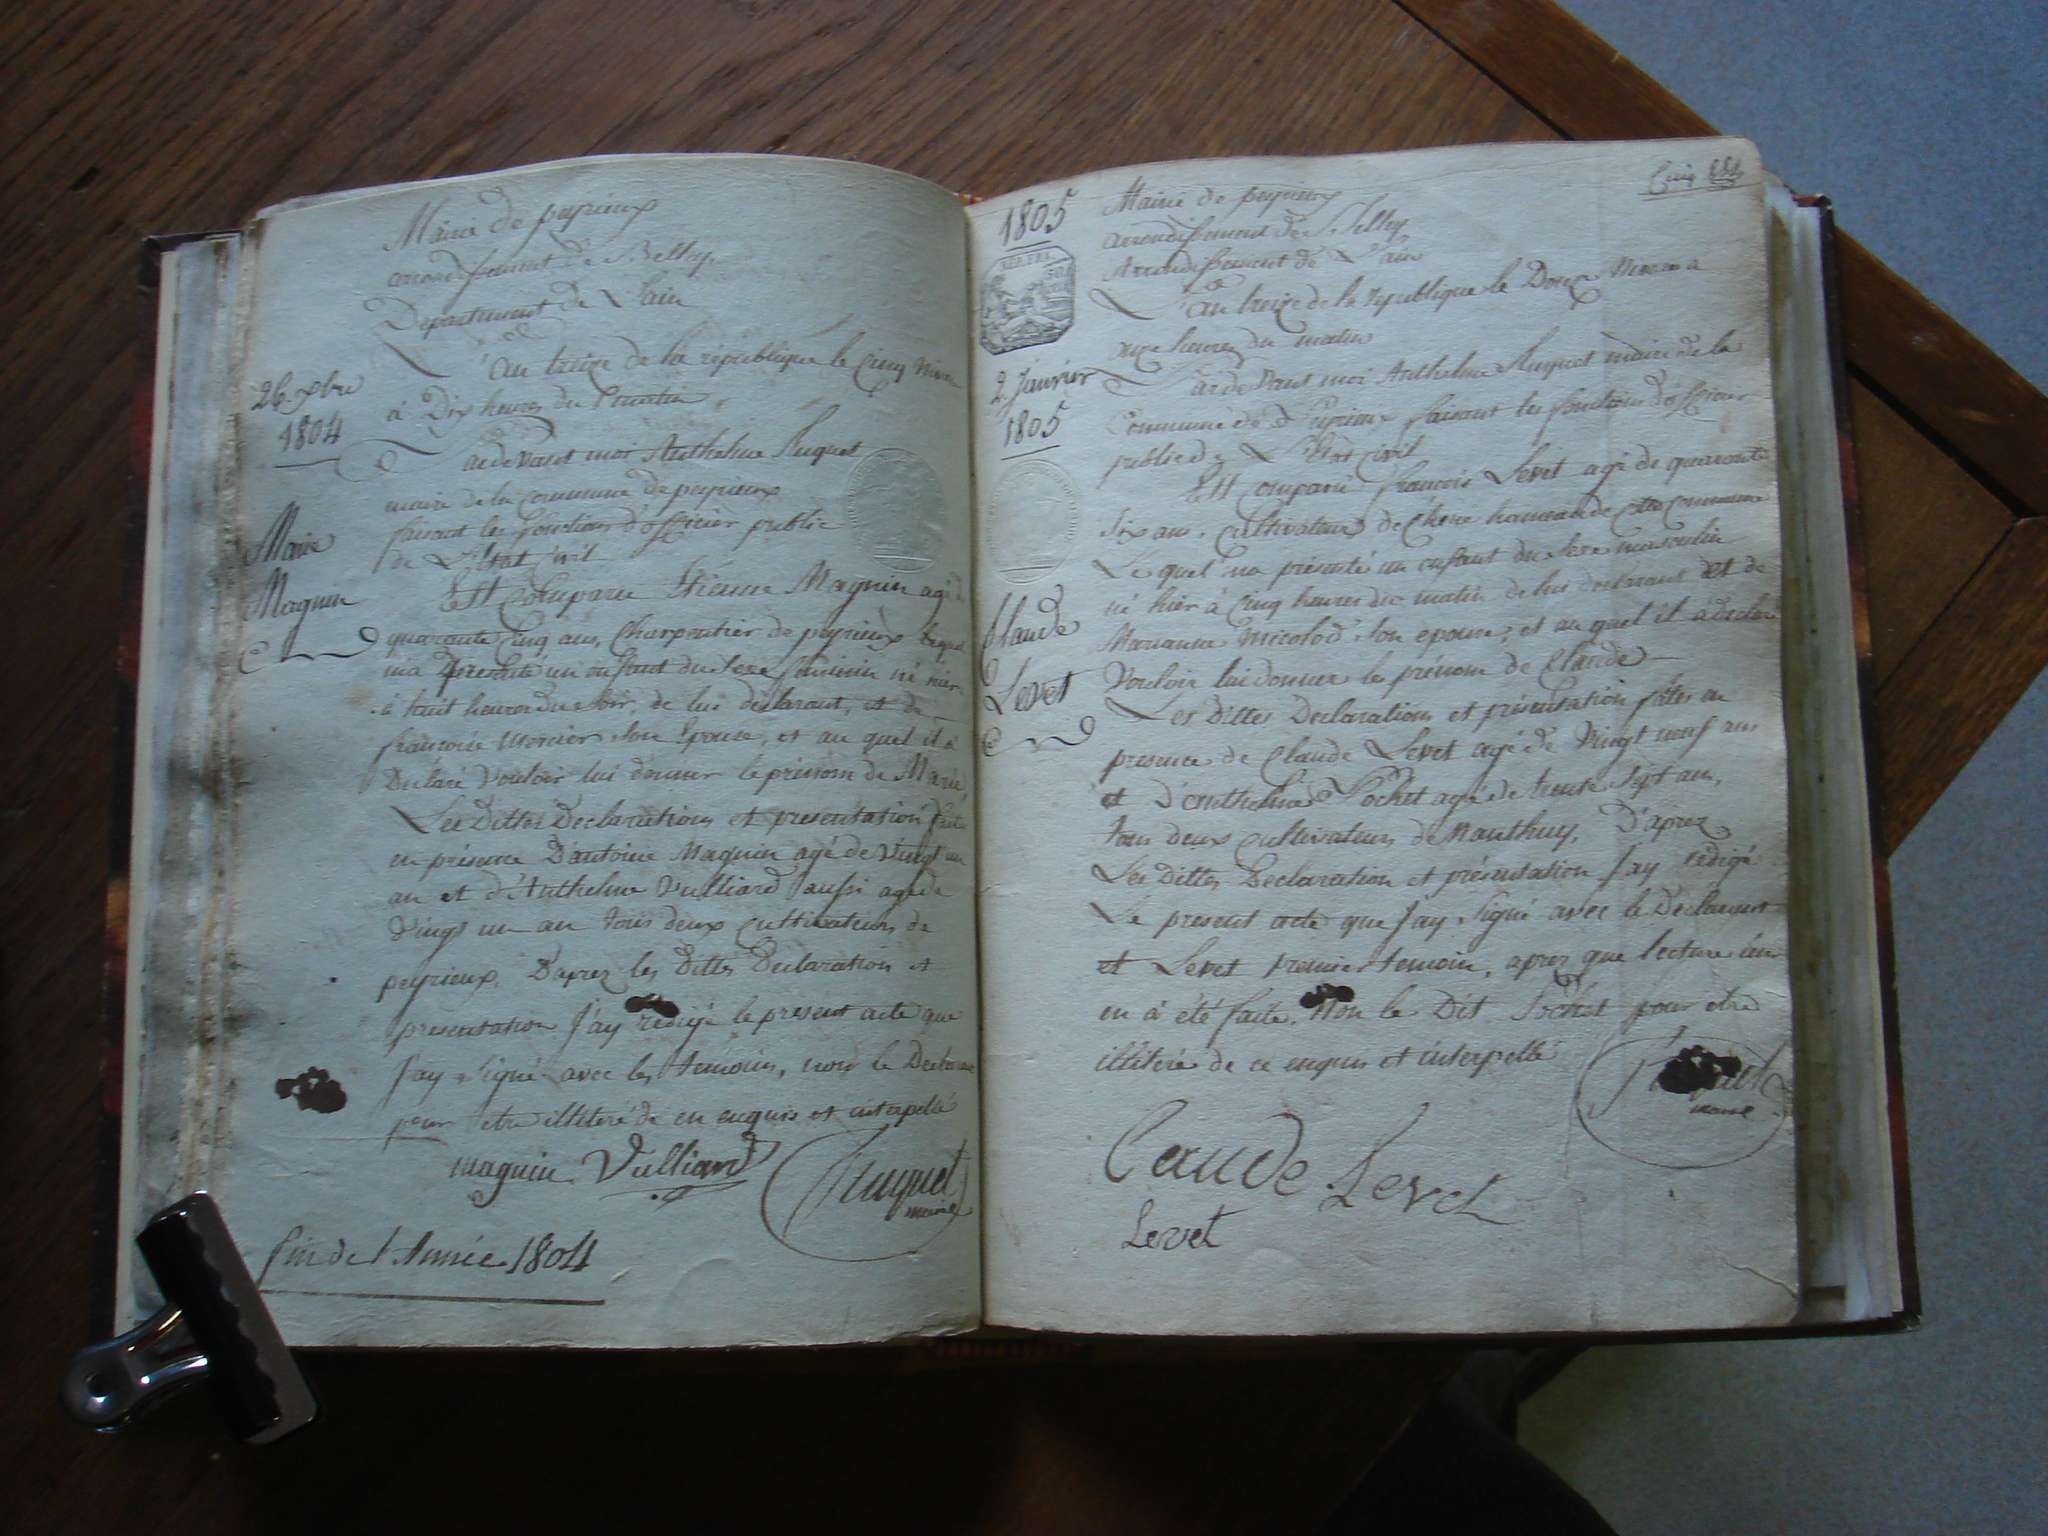 Mairie de peyrieux
arrondissement de Belley
Département de Lain
L'an treize de la république le Cinq Nivose
à Dix heures du matin
26 xbre
1804
Pardevant moi Anthelme Huguet
maire de la commune de peyrieux
faisant les fonctions d'officier public
de L'Etat Civil
Marie
Magnin
Est Comparu Etienne Magnin agé de
quarante Cinq ans, Charpentier de peyrieux lequel
ma présenté un enfant du Sexe féminin né hier
à huit heures du Soir, de lui déclarant, et de
francoise Mercier Son Epouse, et au quel il à
Declaré Vouloir lui donner le prénom de Marie,
Les Dittes Declarations et présentation faites
en présence D'antoine Magnin agé de Vingt un
an et d'Anthelme Vulliard aussi agé de
Vingt un an tous deux Cultivateurs de
peyrieux, D'aprez les Dittes Declaration et
présentation J'ay rédigé le présent acte que
J'ay Signé avec les témoins, non le Declarant
pour etre illiteré de en enquis et interpellé
magnin Vulliard Huguet
maire
fin de l'Année 1804
Cinq
1805
Mairie de peyrieux
arrondissement de Belley
Arrondissement de L'ain
REP. FRA.
L'an treize de la république le Douze Nivose à
onze heures du matin
2 Janvier
1805
Pardevant moi Anthelme Huguet maire de la
Commune de Peyrieux faisant les fonctions d'officier
public de L'Etat Civil
Est Comparu francois Levet agé de quarante
Six ans, Cultivateur de Chene hameau de cette commune
Le quel m'a présenté un enfant du Sexe masculin
né hier à Cinq heures du matin de lui déclarant et de
Claude
Levet
Marianne Micolod Son epouse, et au quel il à declaré
Vouloir lui donner le prénom de Claude
Les Dittes Declarations et présentation fâtes en
presence de Claude Levet agé de Vingt neuf ans
et D'anthelme Pochet agé de trente Sept ans,
tous deux cultivateurs de Nanthuy, D'aprez
Les Dittes Declaration et présentation J'ay rédigé
Le present acte que J'ay Signé avec le Declarant
et Levet premier temoin, aprez que lecture leur
en à été faite, Non le Dit Pochet pour etre
illiteré de ce enquis et interpellé
maire
Claude Levet
Levet